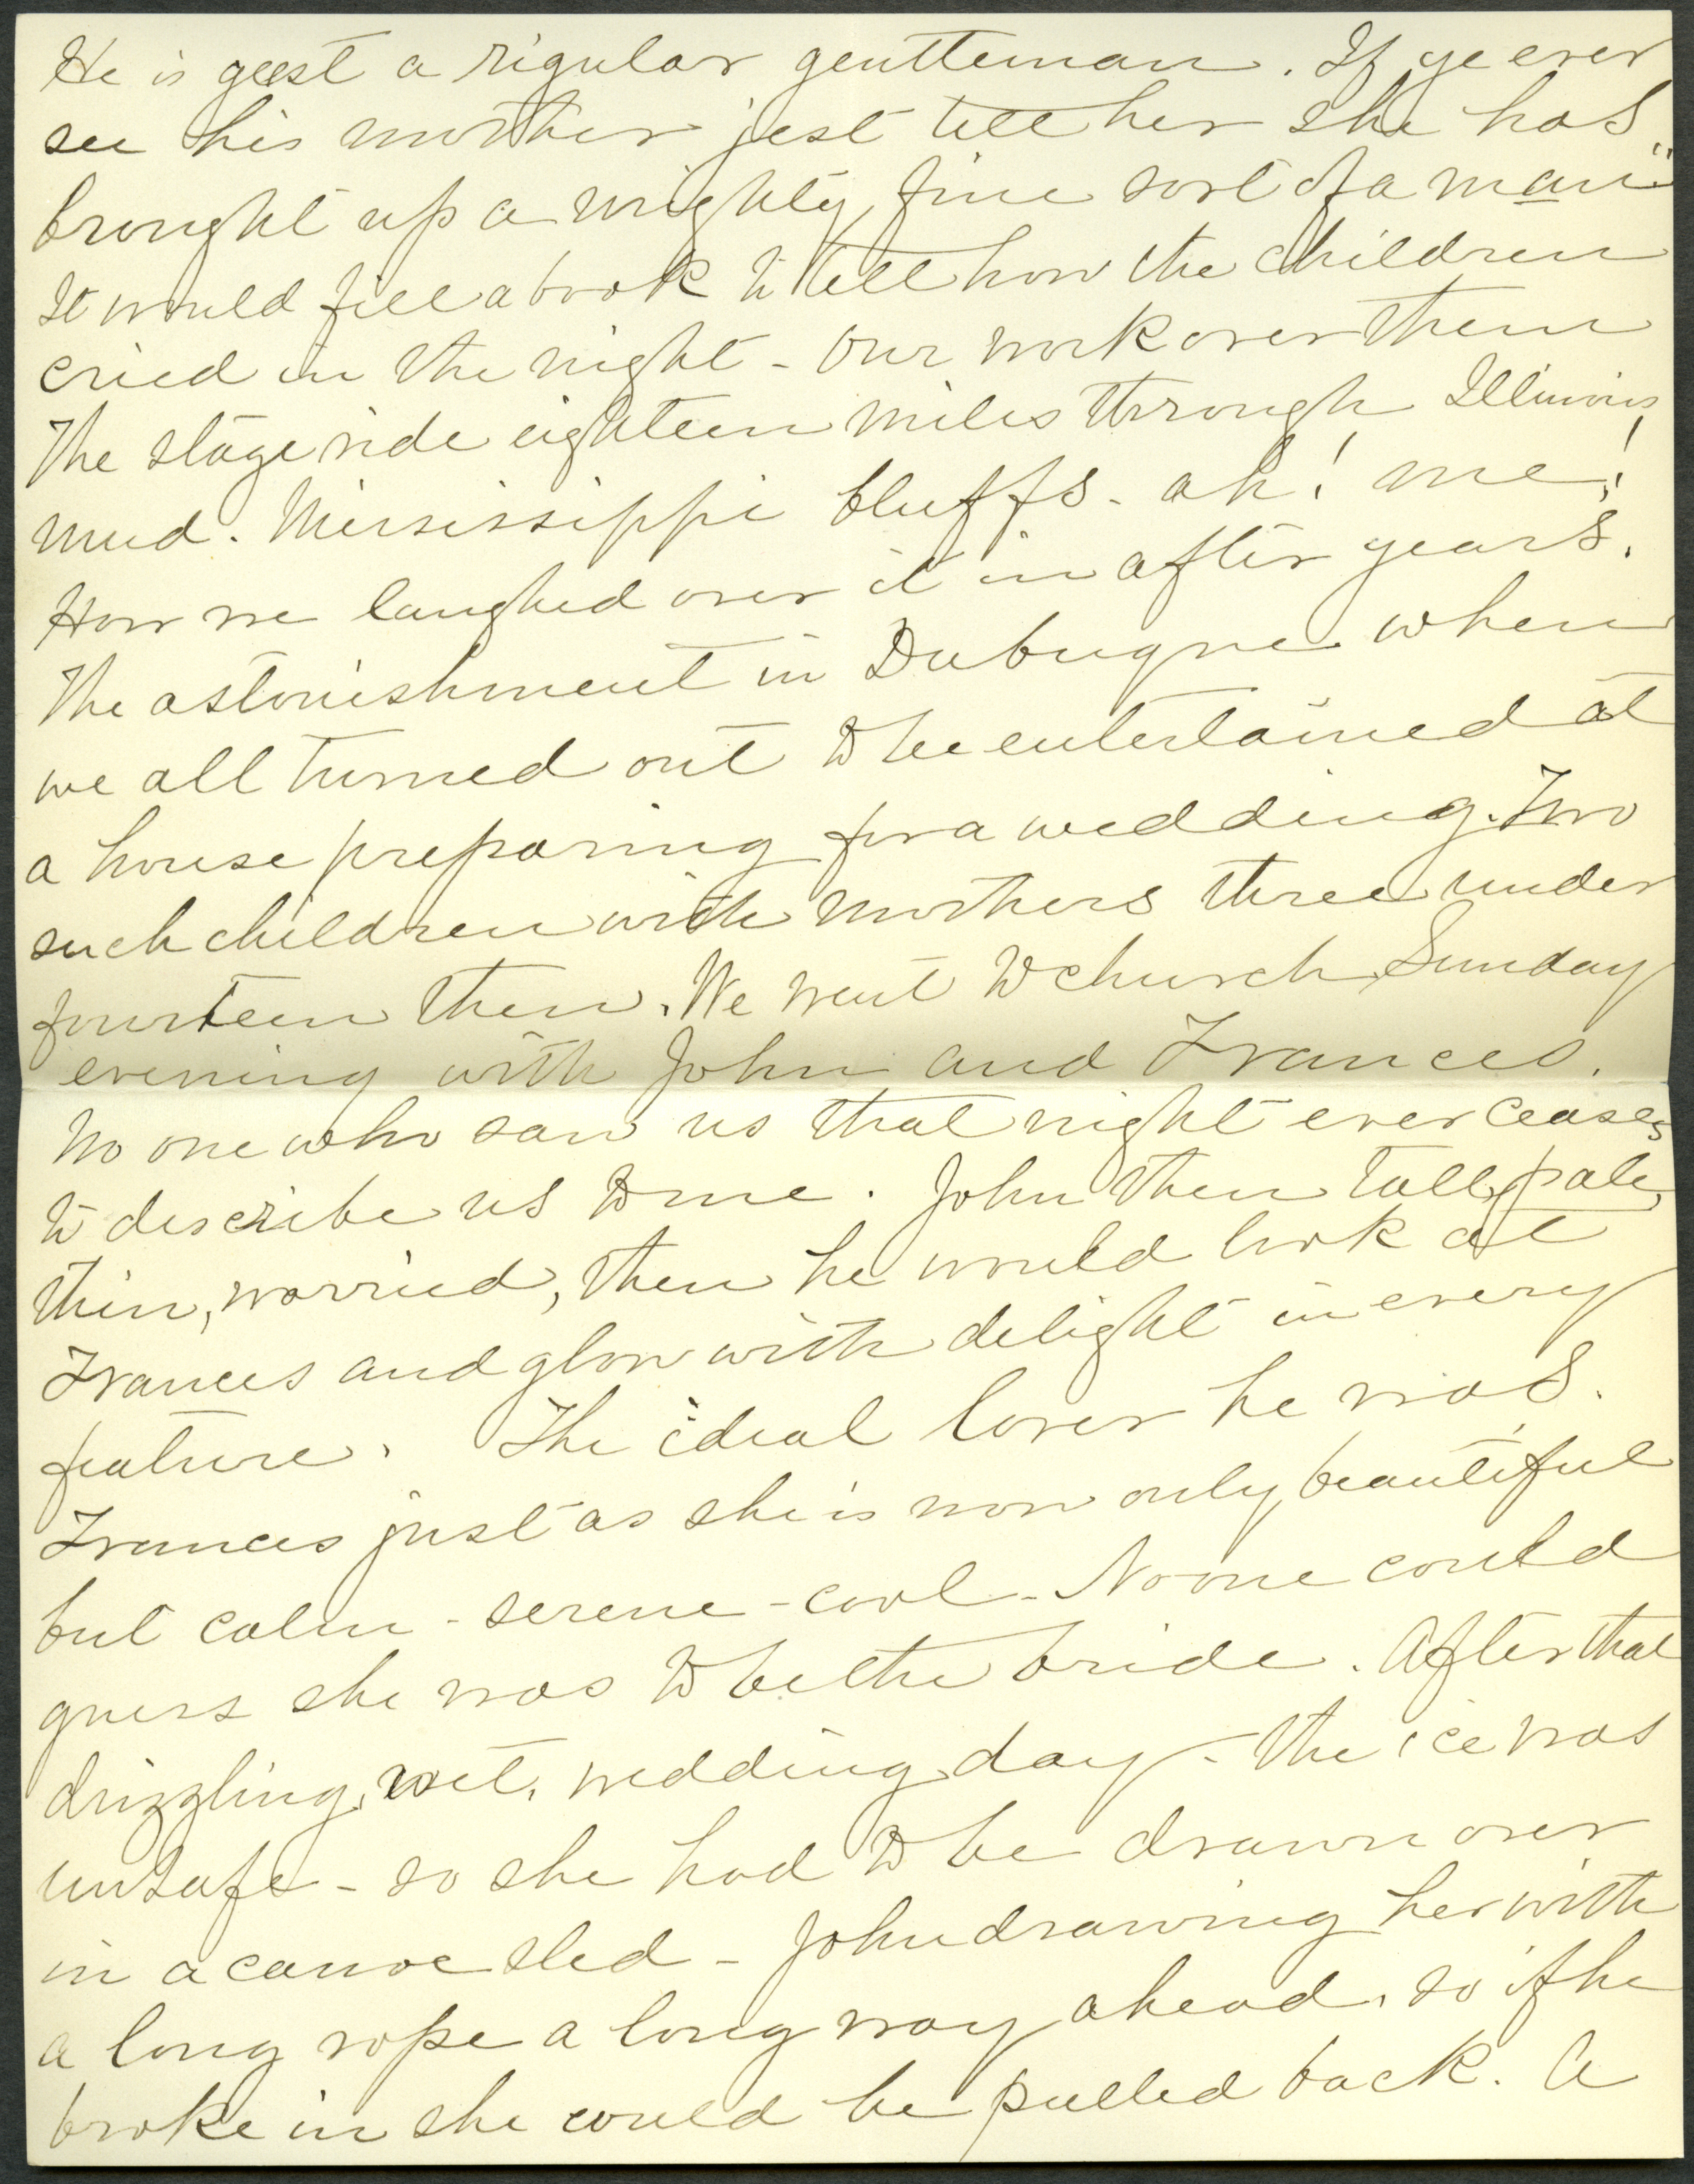 He is geest a rigular gentteman. If ye ever
see his mother jest tell her she has
brought up a mighty fine sort of a man"
It would fill a book to tell how the children
cried in the night - Our work over them
The stage ride eighteen miles through Illinois
mud. Mississippi bluffs - ah! me!!
How we laughed over it in after years.
The astonishment in Dubuque when
we all turned out to be entertained at
a house preparing for a wedding. Two
such children with mothers three under
fourteen then. We went to church Sunday
evening with John and Frances.
No one who saw us that night ever ceases
to describe us to me. John then tall, pale,
thin, worried, then he would look at
Frances and glow with delight in every
feature. The ideal lover he was.
Frances just as she is now only beautiful
but calm - serene - cool - No one could
guess she was to be the bride. After that
drizzling, wet, wedding day - the ice was
unsafe - so she had to be drawn over
in a canoe sled - John drawing her with
a long rope a long way ahead, so if he
broke in she could be pulled back. A